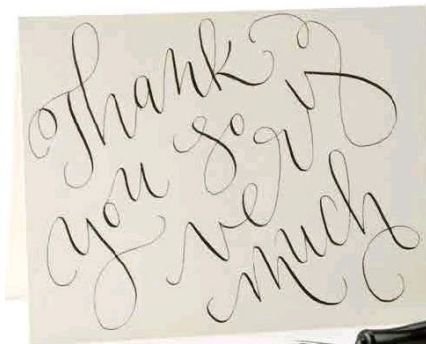 Thank
you so very
much